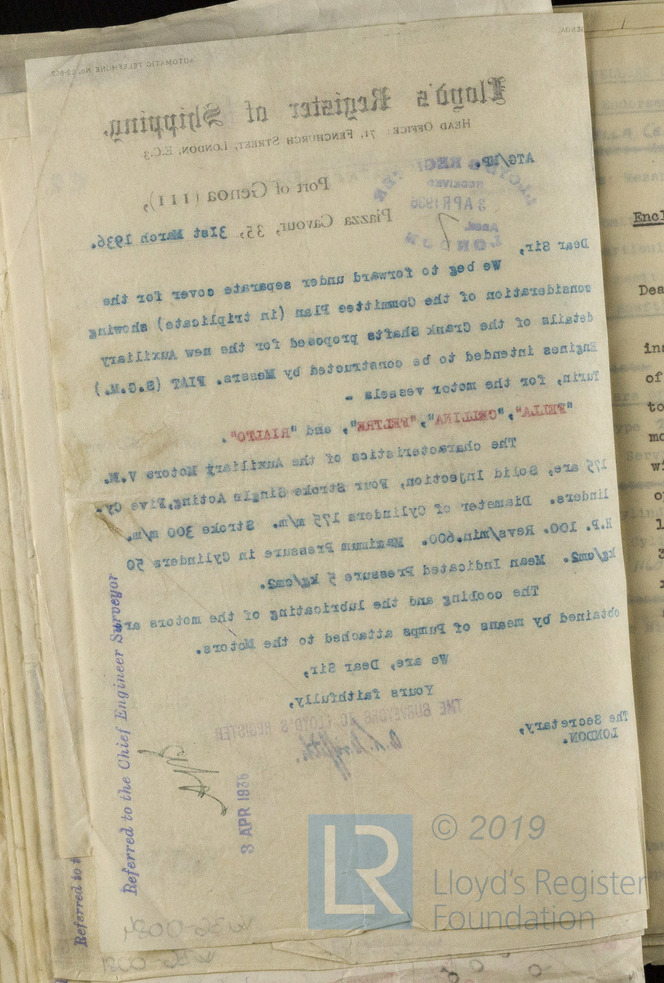 AUTOMATIC TELEPHONE No.
GENOA
Lloyd's Register of Shipping,
HEAD OFFICE: 71, FENCHURCH STREET, LONDON, E.C.3
ATG/MP.
LLOYD'S REGISTER
RECEIVED
3 APR 1936
LONDON
Port of Genoa (III),
Piazza Cavour, 35,, 31st March 1936.
Dear Sir,
We beg to forward under separate cover for the
consideration of the Committee Plan (in triplicate) showing
details of the Crank Shafts proposed for the new Auxiliary
Engines intended to be constructed by Messrs. FIAT (S.G.M.)
Turin, for the motor vessels -
"FELLA", "CELLINA", "FELTRE", and "RIALTO".
The characteristics of the Auxiliary Motors V.M.
175 are, Solid Injection, Four Stroke Single Acting,Five Cy-
linders. Diameter of Cylinders 175 m/m. Stroke 300 m/m.
H.P. 100. Revs/min.600. Maximum Pressure in Cylinders 50
kg/cm2. Mean Indicated Pressure 5 kg/cm2.
The cooling and the lubricating of the motors are
obtained by means of Pumps attached to the Motors.
We are, Dear Sir,
Yours faithfully,
THE SURVEYORS TO LLOYD'S REGISTER
The Secretary,
LONDON.
Referred to the Chief Engineer Surveyor
3 APR 1936
Referred to t
Encl
Dea
ins
of
to
mo
wi
LR
© 2019
Lloyd's Register
Foundation